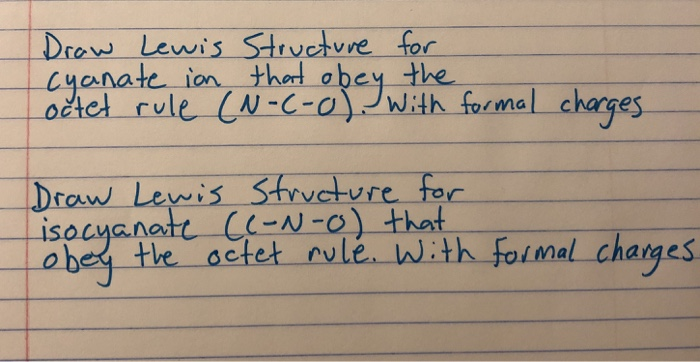 Draw Lewis Structure for
cyanate ion that obey the
octet rule (N-C-O). With formal charges
Draw Lewis Structure for
isocyanate (C-N-O) that
obey the octet rule. With formal charges